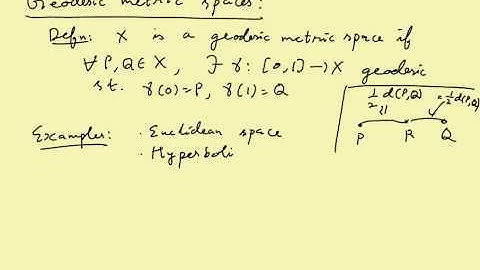 Geodesic metric spaces:
Defn: X is a geodesic metric space if
∀ P, Q ∈ X, ∃ γ: [0,1] → X geodesic
st. γ(0)=P, γ(1)=Q
½ d(P,Q) =½ d(P,Q)
P R Q
Examples: · Euclidean space
· Hyperboli